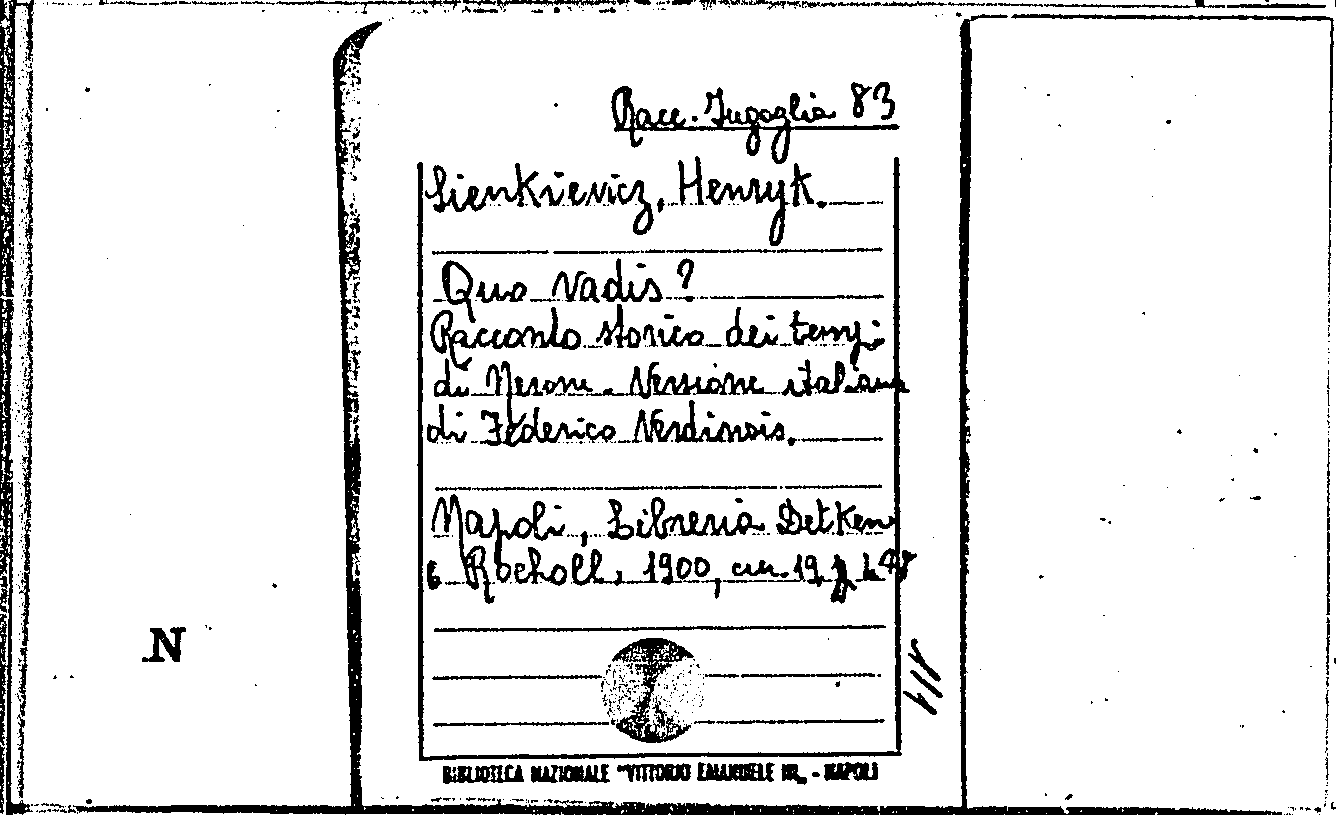 Racc. Fugaglia 83
Sienkievicz, Henryk.
Quo Vadis?
Racconto storico dei tempi
di Nerone. Versione italiana
di Federico Verdinois.
Napoli, Libreria Detken
e Rocholl, 1900, cm. 19,
N
BIBLIOTECA NAZIONALE "VITTORIO EMANUELE III„ - NAPOLI